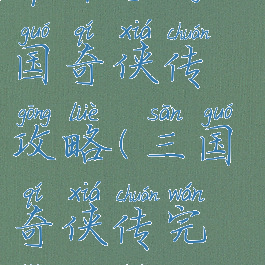 guó qí xiá chuán
国奇侠传
gōng lüè sān guó
攻略(三国
qí xiá chuán wán
奇侠传完